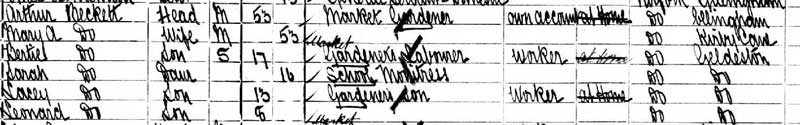 Arthur Beckett Head M 53 Market Gardener own account at home Do Gillingham
Mary A Do Wife M 53 Do Kirby Cane
Bertie Do Son S 17 Market Gardener's Labourer Worker at home Do Geldeston
Sarah Do Daur 16 School Monitress Do Do
Lacey Do Son 13 Gardener's Son Worker at Home Do Do
Leonard Do Son 8 Market Do Do